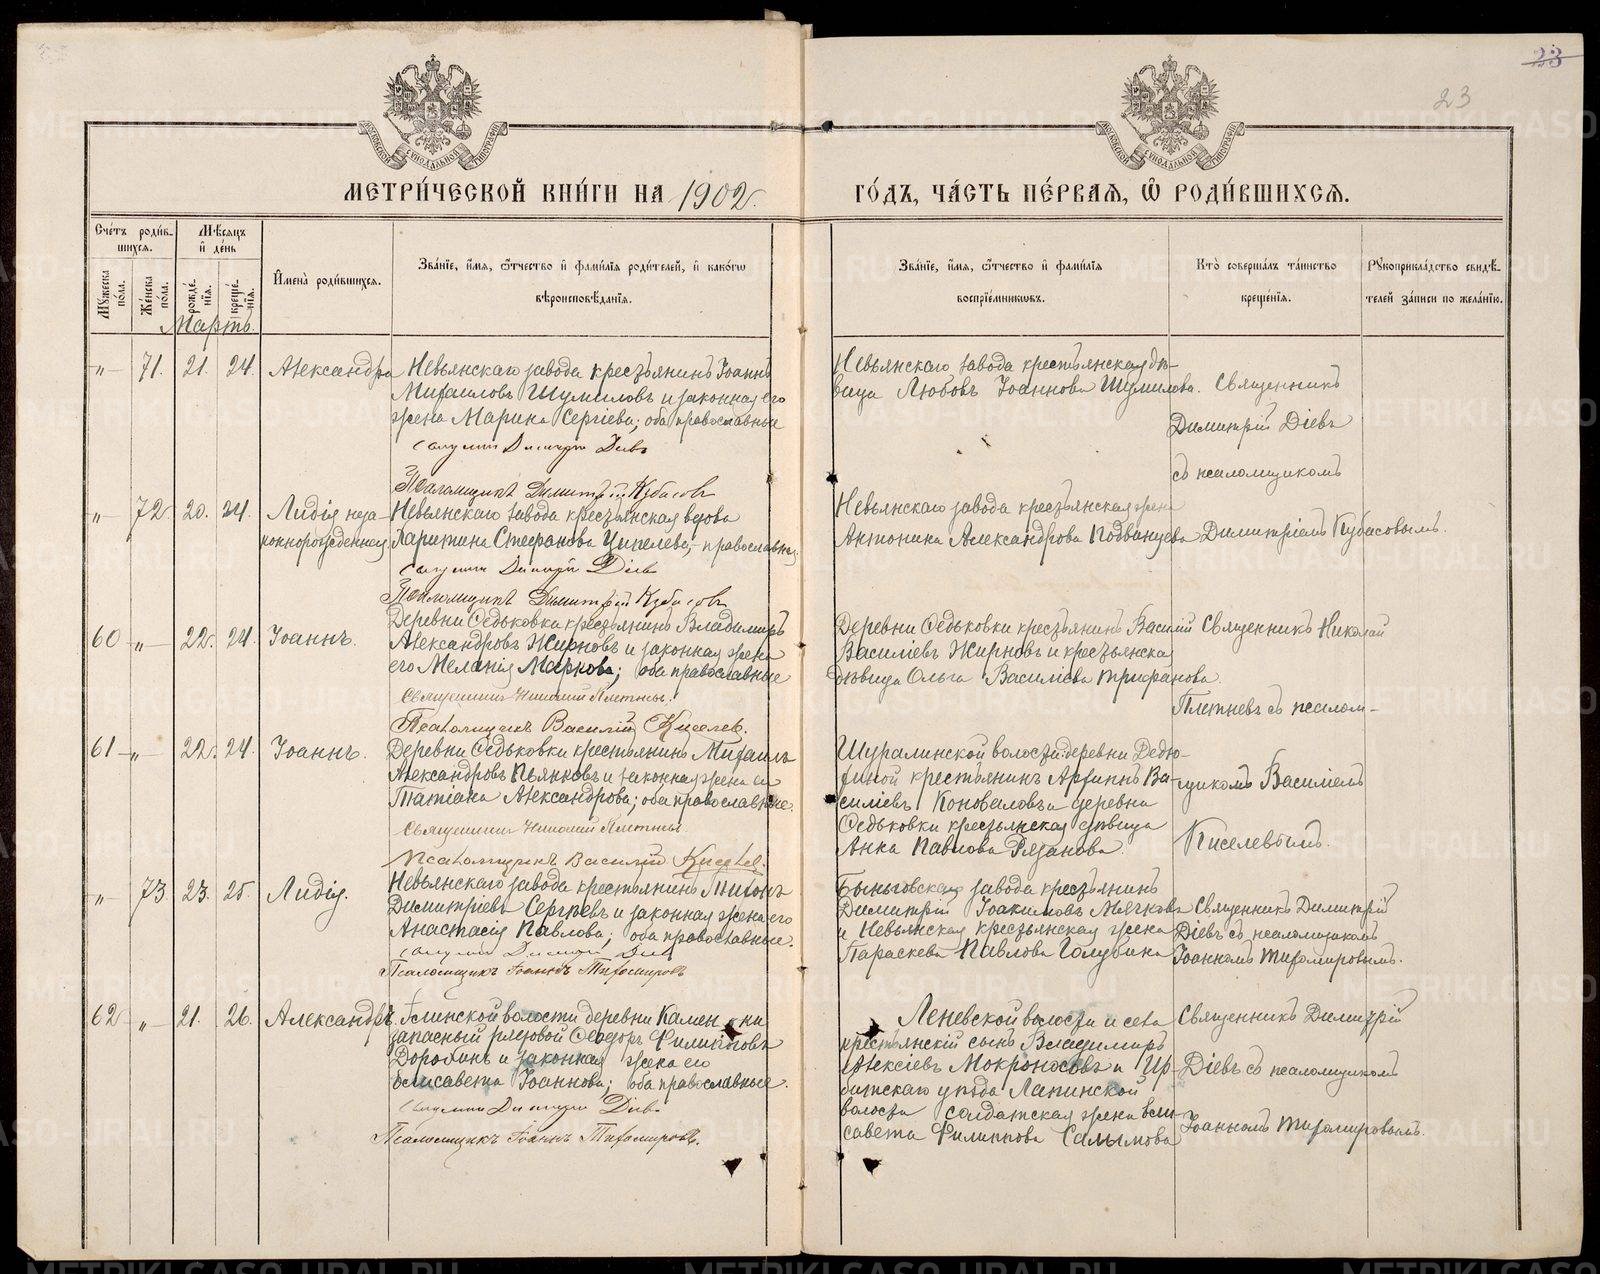 23
23
МЕТРИ́ЧЕСКОЙ КНИ́ГИ НА 1902
ГО́ДЪ, ЧА́СТЬ ПЕ́РВАЯ, Ѽ РОДИ́ВШИХСЯ.
Сче́тъ роди́вшихся.
Мѣ́сяцъ и де́нь
Му́жеска по́ла.
Же́нска по́ла.
рожде́нія.
креще́нія.
Имена̀ роди́вшихся.
Зва́ніе, и́мя, ѻ́тчество и фами́лія роди́телей, и како́гѡ
вѣроисповѣ́данія.
Зва́ніе, и́мя, ѻ́тчество и фами́лія
воспріе́мникѡвъ.
Кто̀ соверша́лъ та́инство
креще́нія.
Рукоприкла́дство свидѣ́телей за́писи по жела́нію.
Мартъ.
„ 71. 21. 24. Александра
Невьянскаго завода крестьянинъ Іоаннъ
Михаиловъ Шумиловъ и законная его
жена Марина Сергіева; оба православные
Священникъ Димитрій Діевъ
Псаломщикъ Димитрій Кубасовъ
Невьянскаго завода крестьянская дѣ-
вица Любовь Іоаннова Шумилова.
Священникъ
Димитрій Діевъ
съ псаломщикомъ
Димитріемъ Кубасовымъ.
„ 72. 20. 24. Лидія неза-
коннорожденная
Невьянскаго завода крестьянская вдова
Харитина Стефанова Цепелева, православная
Священникъ Димитрій Діевъ
Псаломщикъ Димитрій Кубасовъ
Невьянскаго завода крестьянская жена
Антонина Александрова Подвинцева
60 „ 22. 24. Іоаннъ.
Деревни Ѳедьковки крестьянинъ Владимиръ
Александровъ Жирновъ и законная жена
его Меланія Маркова; оба православные
Священникъ Николай Плетневъ.
Псаломщикъ Василій Киселев.
Деревни Ѳедьковки крестьянинъ Василій
Василіевъ Жирновъ и крестьянская
дѣвица Ольга Василіева Трифанова.
Священникъ Николай
Плетневъ съ псалом-
щикомъ Василіемъ
Киселевымъ.
61 „ 22. 24. Іоаннъ.
Деревни Ѳедьковки крестьянинъ Михаилъ
Александровъ Пьянковъ и законная жена его
Татіана Александрова; оба православные.
Священникъ Николай Плетневъ.
Псаломщикъ Василій Киселев.
Шуралинской волости деревни Дедю-
хиной крестьянинъ Архипъ Ва-
силіевъ Коноваловъ и деревни
Ѳедьковки крестьянская дѣвица
Анна Павлова Рязанова
„ 73. 23. 25. Лидія.
Невьянскаго завода крестьянинъ Тихонъ
Димитріевъ Сергѣевъ и законная жена его
Анастасія Павлова; оба православные.
Священникъ Димитрій Діевъ
Псаломщикъ Іоаннъ Тихомировъ
Быньговскаго завода крестьянинъ
Димитрій Іоакимовъ Мягковъ
и Невьянская крестьянская жена
Параскева Павлова Голубина
Священникъ Димитрій
Діевъ съ псаломщикомъ
Іоанномъ Тихомировымъ.
62 „ 21. 26. Александръ.
волости деревни Каменки
запасный рядовой Ѳеодоръ Филипповъ
Дорохинъ и законная жена его
Елисавета Іоаннова; оба православные.
Священникъ Димитрій Діевъ
Псаломщикъ Іоаннъ Тихомировъ.
Леневской волости и села
крестьянскій сынъ Владимиръ
Алексіевъ Мокроносовъ и Ир-
битскаго уѣзда Лапинской
волости солдатская жена Ели-
савета Филиппова Салымова
Священникъ Димитрій
Діевъ съ псаломщикомъ
Іоанномъ Тихомировымъ.
METRIKI.GASO-URAL.RU